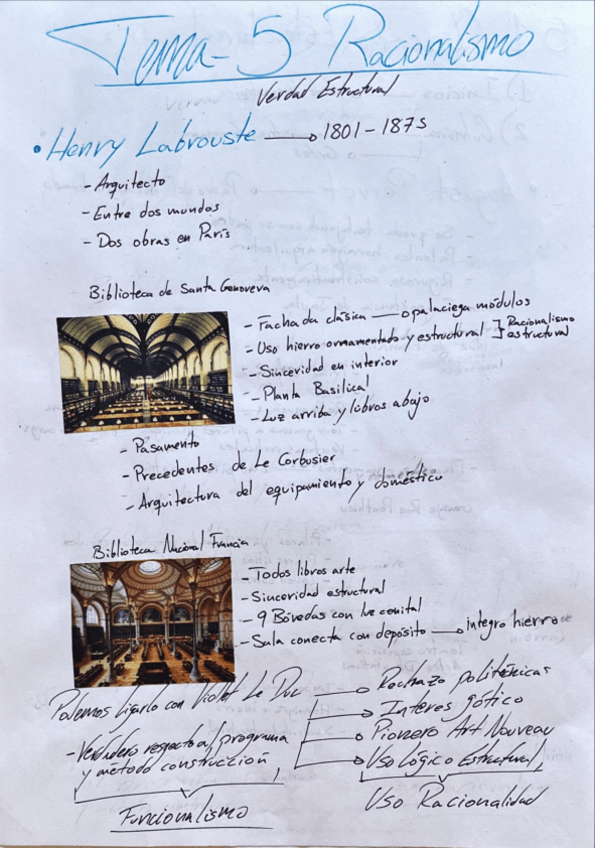 Tema-5 Racionalismo
Verdad Estructural
• Henry Labrouste → 1801-1875
- Arquitecto
- Entre dos mundos
- Dos obras en París
Biblioteca de Santa Genoveva
- Fachada clásica → palaciega módulos
- Uso hierro ornamentado y estructural ] Racionalismo estructural
- Sinceridad en interior
- Planta Basilical
- Luz arriba y libros abajo
- Pasamento
- Precedentes de Le Corbusier
- Arquitectura del equipamiento y doméstico
Biblioteca Nacional Francia
- Todos libros arte
- Sinceridad estructural
- 9 Bóvedas con luz cenital
- Sala conecta con depósito → integro hierro
Podemos ligarlo con Violet Le Duc
→ Rechazo politécnicas
→ Interes gótico
→ Pionero Art Nouveau
→ Uso Lógico Estructural,
Uso Racionalidad
- Verdadero respecto al programa
y método construcción,
Funcionalismo